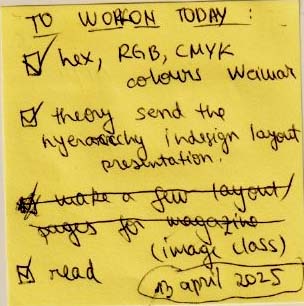 TO WORK ON TODAY :
hex, RGB, CMYK
colours Weimar
theory send the
hyerarchy indesign layout
presentation.
make a few layout/
pages for magazine
(image class)
read
13 april 2025